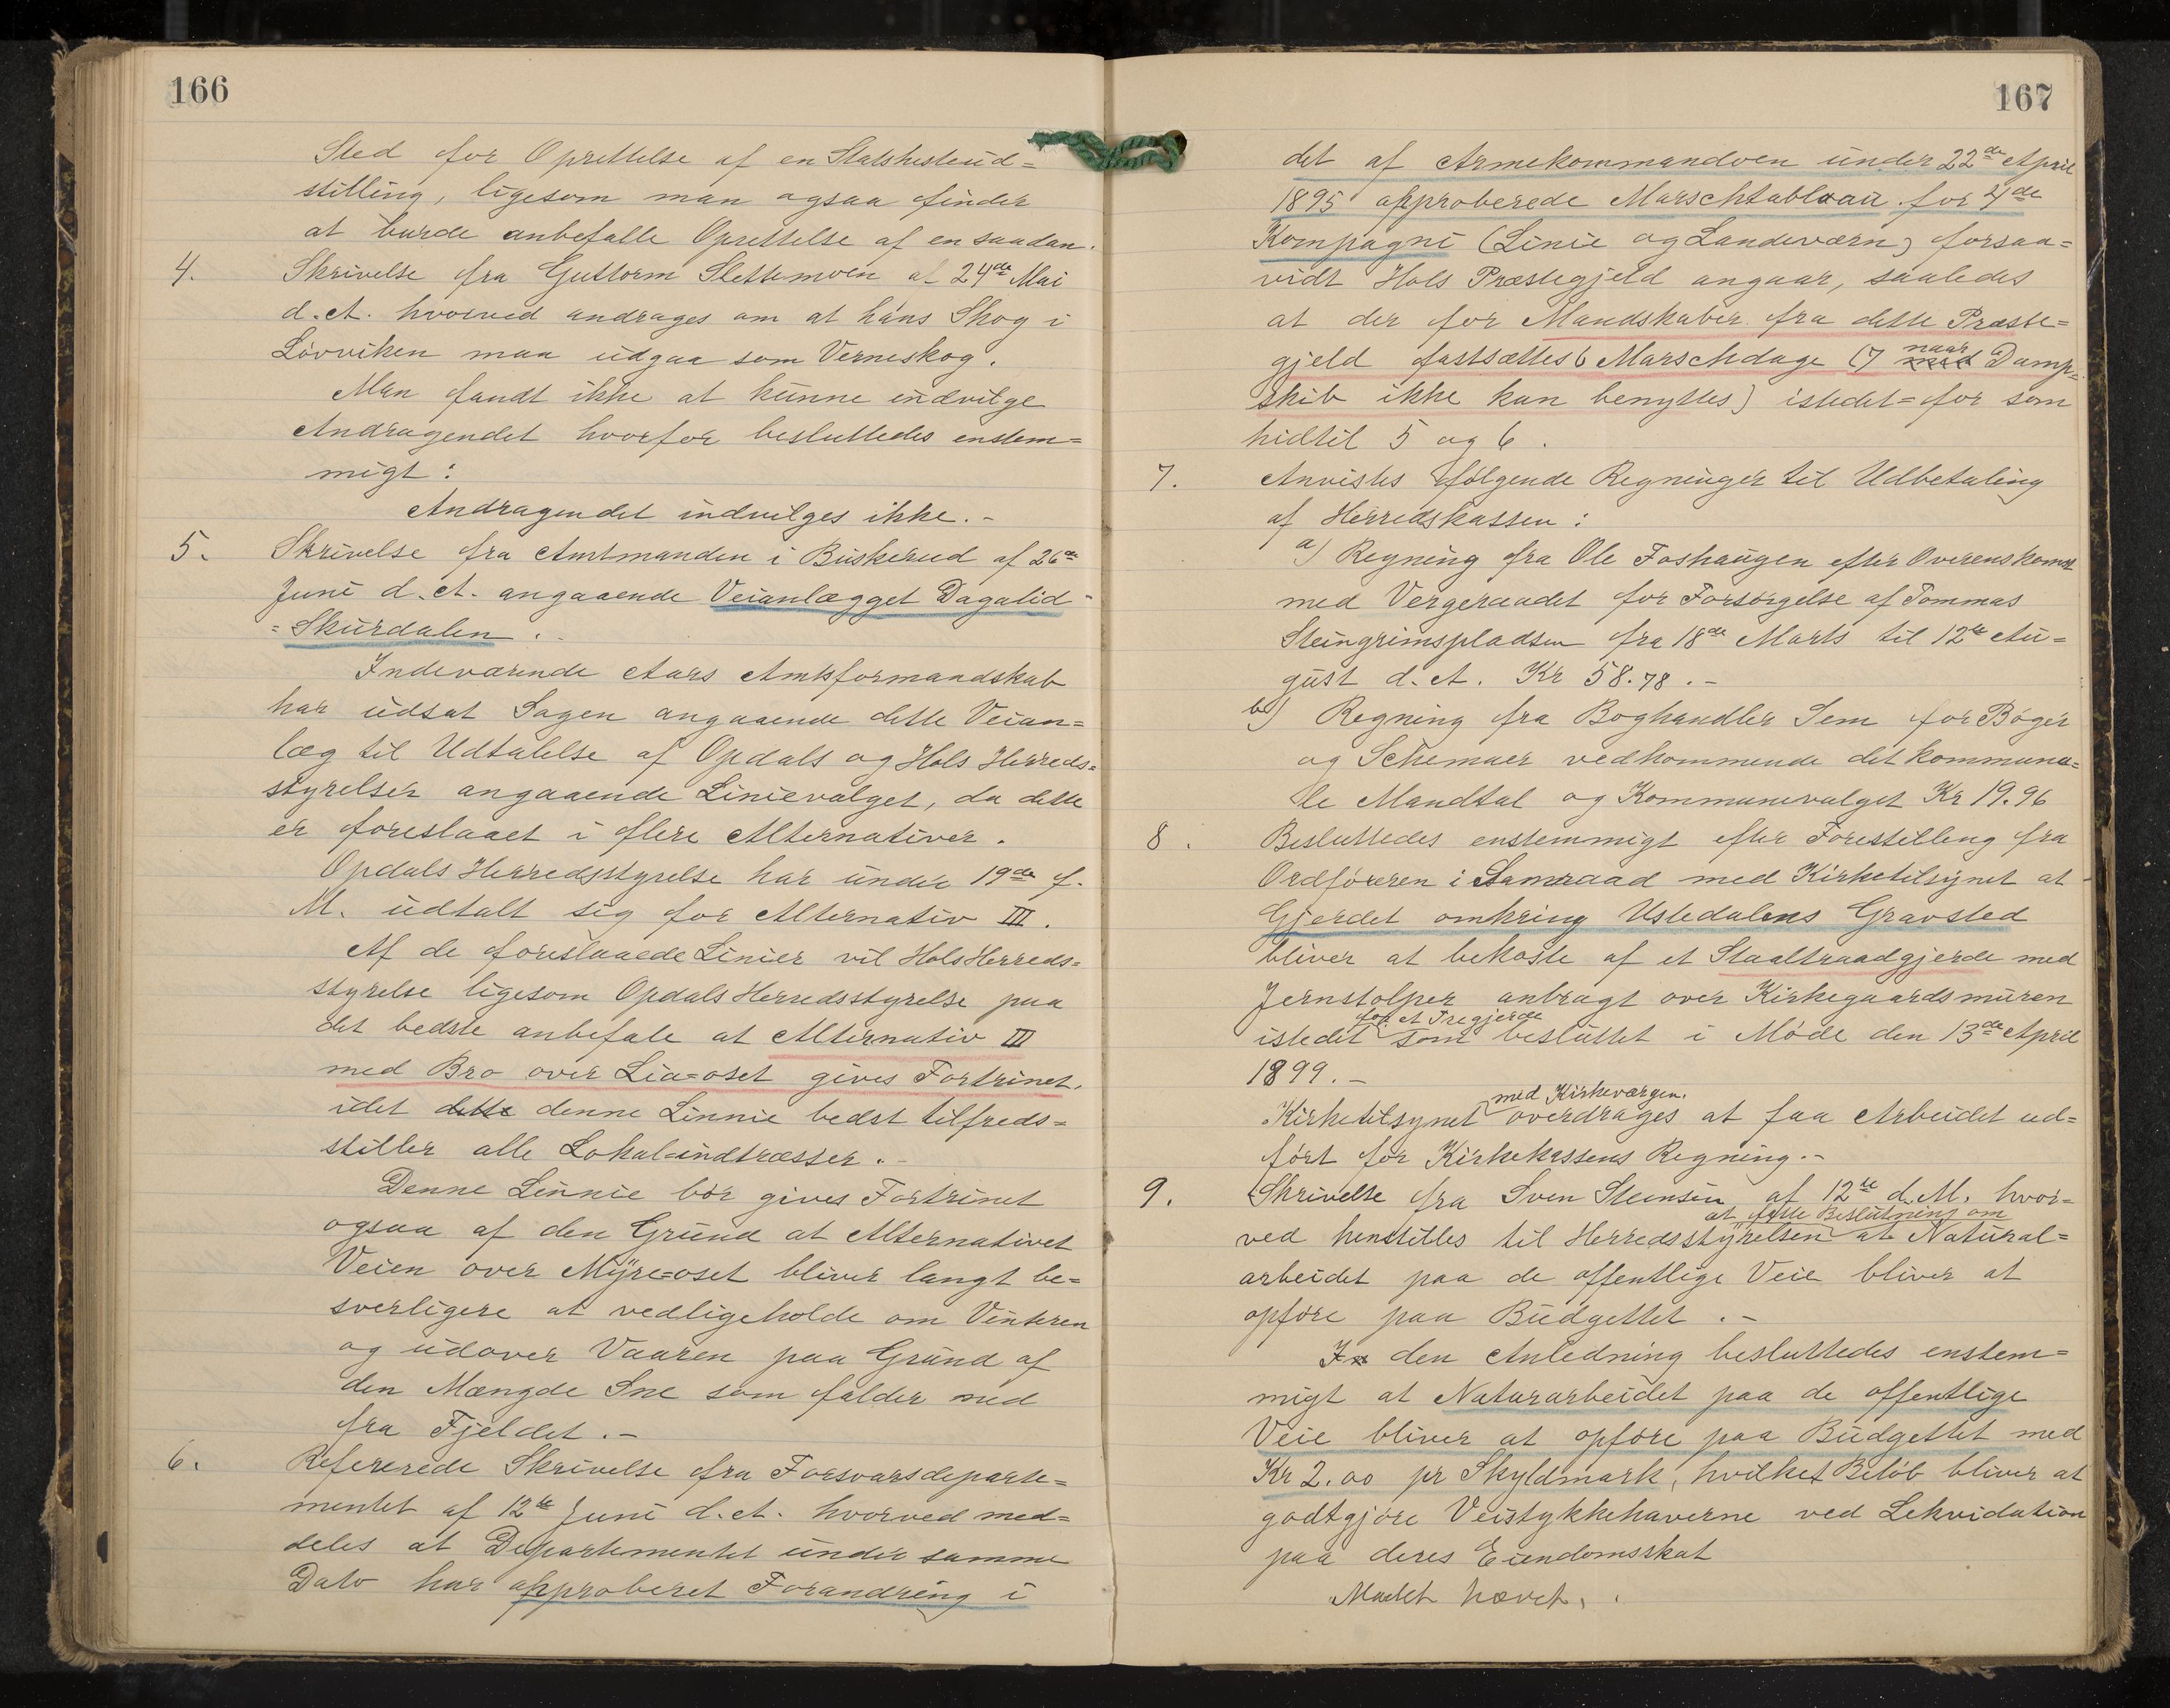 166
Sted for Oprettelse af en Statshesteud=
stilling, ligesom man ogsaa finder
at burde anbefalle Oprettelse af en saadan.
4. Skrivelse fra Guttorm Slettemoen af 24de Mai
d. A. hvorved andrages om at hans Skog i
Lovviken maa udgaa som Verneskog.
Man fandt ikke at kunne indvilge
Andragendet hvorfor besluttedes enstem=
migt:
Andragendet indvilges ikke.-
5. Skrivelse fra Amtmanden i Buskerud af 26de
Juni d. A. angaaende Veianlægget Dagalid
=Skurdalen.-
Indeværende Aars Amtsformandskab
har udsat Sagen angaaende dette Veian=
læg til Udtalelse af Opdals og Hols Herreds=
styrelser angaaende Linievalget, da dette
er foreslaaet i flere Alternativer.
Opdals Herredsstyrelse har under 19de f.
M. udtalt sig for Alternativ III.
Af de foreslaaede Linier vil Hols Herreds=
styrelse ligesom Opdals Herredsstyrelse paa
det bedste anbefale at Alternativ III
med Bro over Lia=oset gives Fortrinet.
idet dette denne Linnie bedst tilfreds=
stiller alle Lokal=indtræsser.-
Denne Linnie bör gives Fortrinet
ogsaa af den Grund at Alternativet
Veien over Myre=oset bliver langt be=
sverligere at vedligeholde om Vinteren
og udover Vaaren paa Grund af
den Mængde Sne som falder ned
fra Fjeldet.-
6. Refererede Skrivelse fra Forsvarsdeparte=
mentet af 12te Juni d. A. hvorved med=
deles at Departementet under samme
Dato har approberet Forandring i
167
det af Armekommandoen under 22de April
1895 approberede Marschtablaau for 4de
Kompagni (Linie og Landeværn) forsaa=
vidt Hols Præstegjeld angaar, saaledes
at der for Mandskaber fra dette Præste=
gjeld fastsættes 6 Marschdage (7 med naar Damp=
skib ikke kan benyttes) istedet=for som
hidtil 5 og 6.
7. Anvistes følgende Regninger til Udbetaling
af Herredskassen:
a) Regning fra Ole Foshaugen efter Overenskomst
med Vergeraadet for Forsørgelse af Tommas
Steingrimspladsen fra 18de Marts til 12te Au=
gust d. A. Kr 58.78.-
b) Regning fra Boghandler Sem for Bøger
og Schemaer vedkommende det kommuna=
le Mandtal og Kommunevalget Kr 19.96
8. Besluttedes enstemmigt efter Forestilling fra
Ordføreren i Samraad med Kirketilsynet at
Gjerdet omkring Ustedalens Gravsted
bliver at bekoste af et Staaltraadgjerde med
Jernstolper anbragt over Kirkegaardsmuren
for et Tregjerde
istedet som besluttet i Møde den 13de April
1899.-
med Kirkeværgen.
Kirketilsynet overdrages at faa Arbeidet ud=
ført for Kirkekassens Regning.-
9. Skrivelse fra Sven Steinsen af 12te d. M. hvor=
at fatte Beslutning om
ved henstilles til Herredsstyrelsen at Natural=
arbeidet paa de offentlige Veie bliver at
opføre paa Budgettet.-
I den Anledning besluttedes enstem=
migt at Naturarbeidet paa de offentlige
Veie bliver at opføre paa Budgettet med
Kr 2.00 pr Skyldmark, hvilket Beløb bliver at
godtgjøre Veistykkehaverne ved Lekvidation
paa deres Eiendomsskat
Mødet hævet.